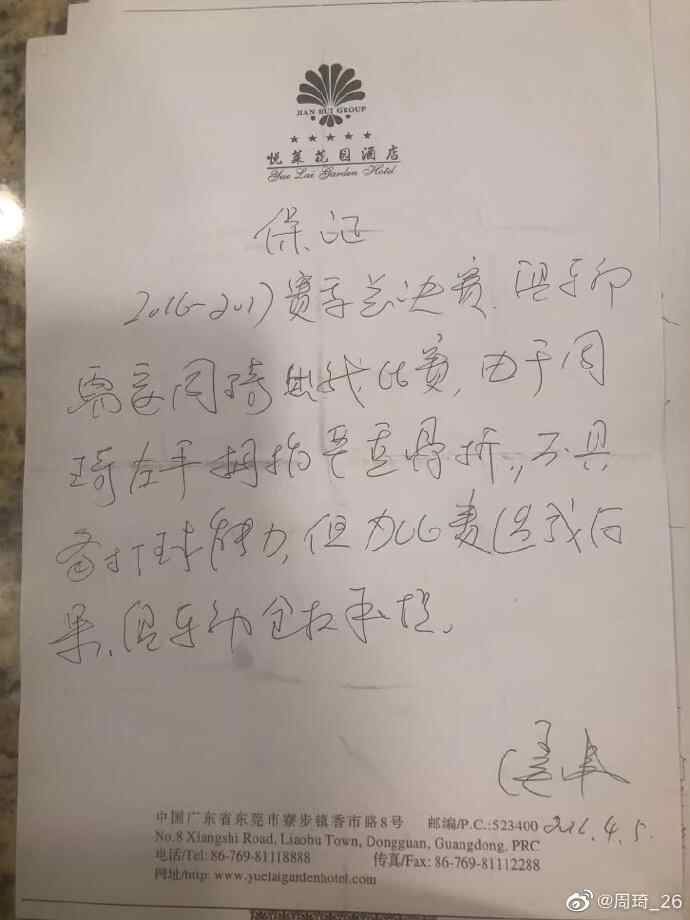 JIAN HUI GROUP
★★★★★
悦莱花园酒店
Yue Lai Garden Hotel
保证
2016-2017赛季总决�,俱乐部
需要周琦出战比赛,由于周
琦左手拇指严重骨折,不具
备打球能力,但为比赛造成后
果,俱乐部全权承担。
中国广东省东莞市寮步镇香市路8号 邮编/P.C.:523400
2016.4.5.
No.8 Xiangshi Road, Liaobu Town, Dongguan, Guangdong, PRC
电话/Tel: 86-769-81118888 传真/Fax: 86-769-81112288
网址/http: www.yuelaigardenhotel.com
@周琦_26